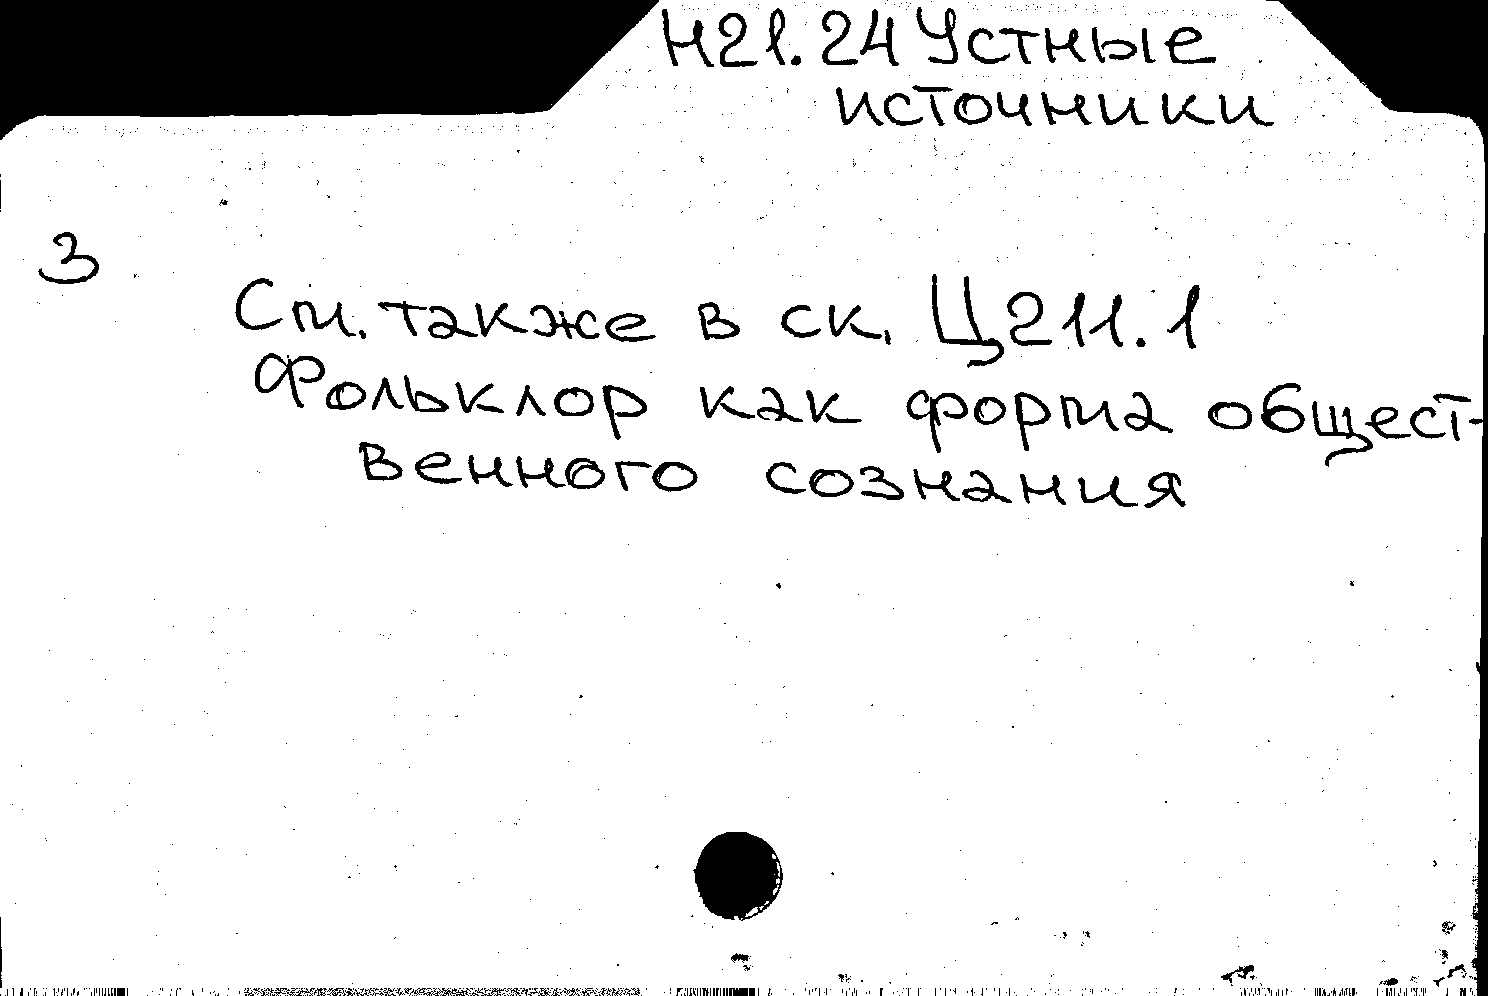 Н21.24 Устные
источники
3
См. также в ск. Ц211.1
Фольклор как форма общест-
венного сознания